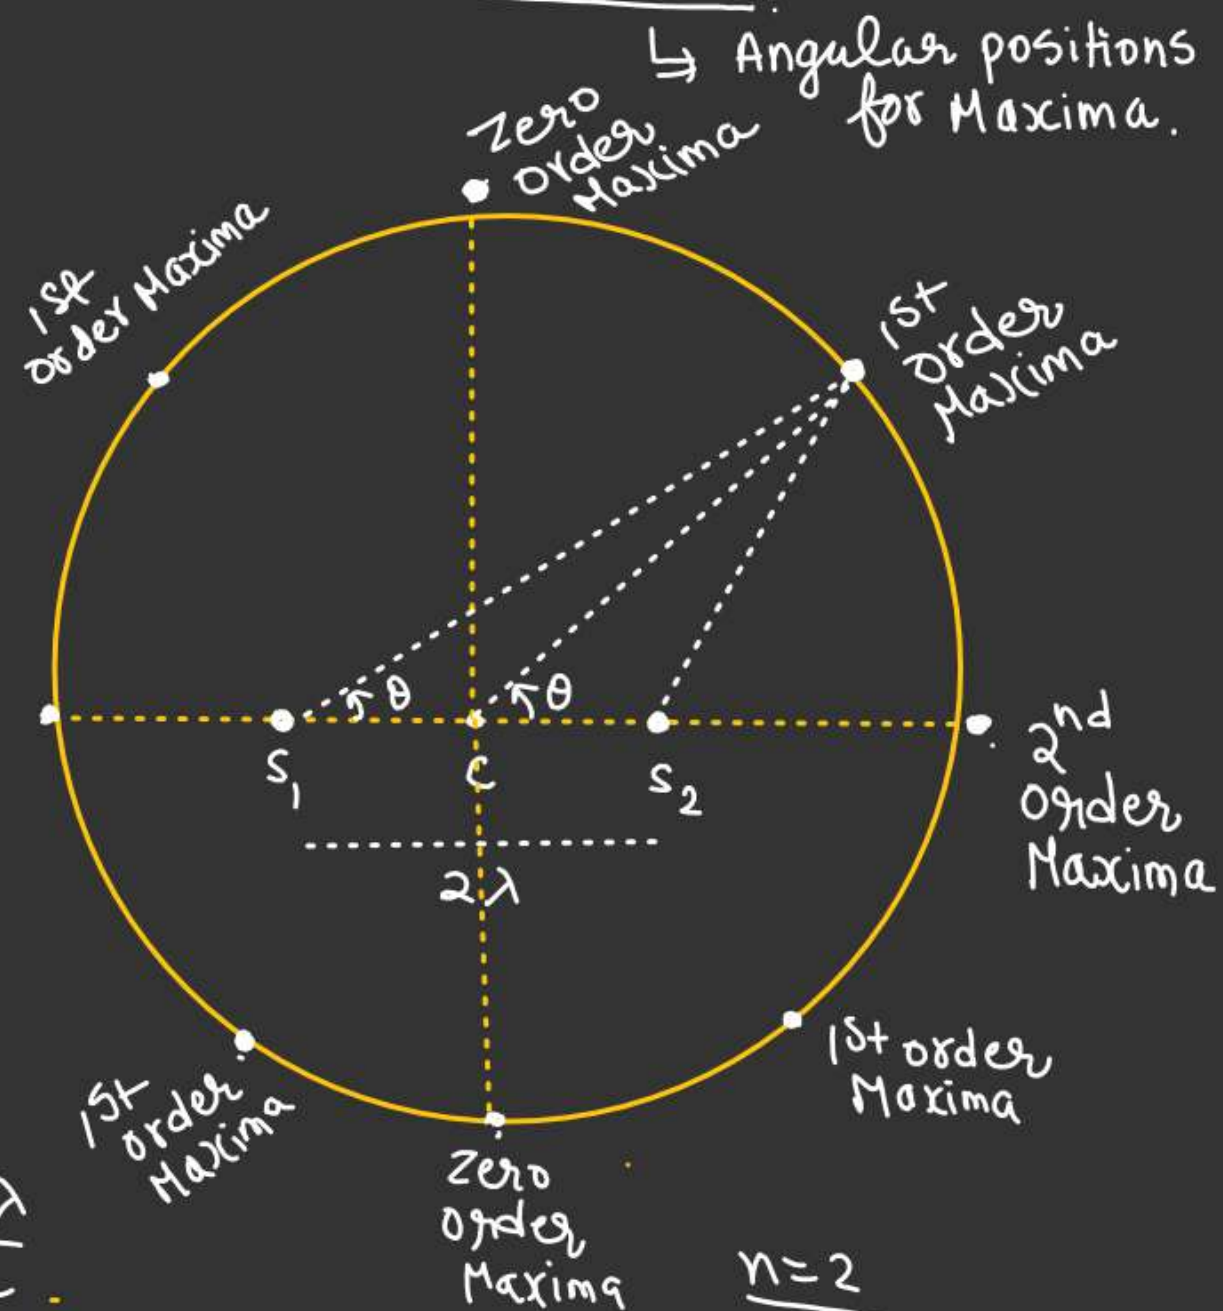 ↳ Angular positions
for Maxima.
Zero
order
Maxima
1st
order Maxima
1st
order
Maxima
θ
θ
S1
C
S2
2nd
order
Maxima
2λ
1st order
Maxima
1st
order
Maxima
Zero
order
Maxima
n=2